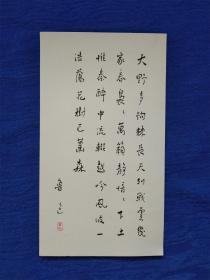 大野多鉤棘長天列戰雲幾
家春裊〻萬籟靜愔〻下土
惟秦醉中流輟越吟風波一
浩蕩花樹已蕭森
魯迅